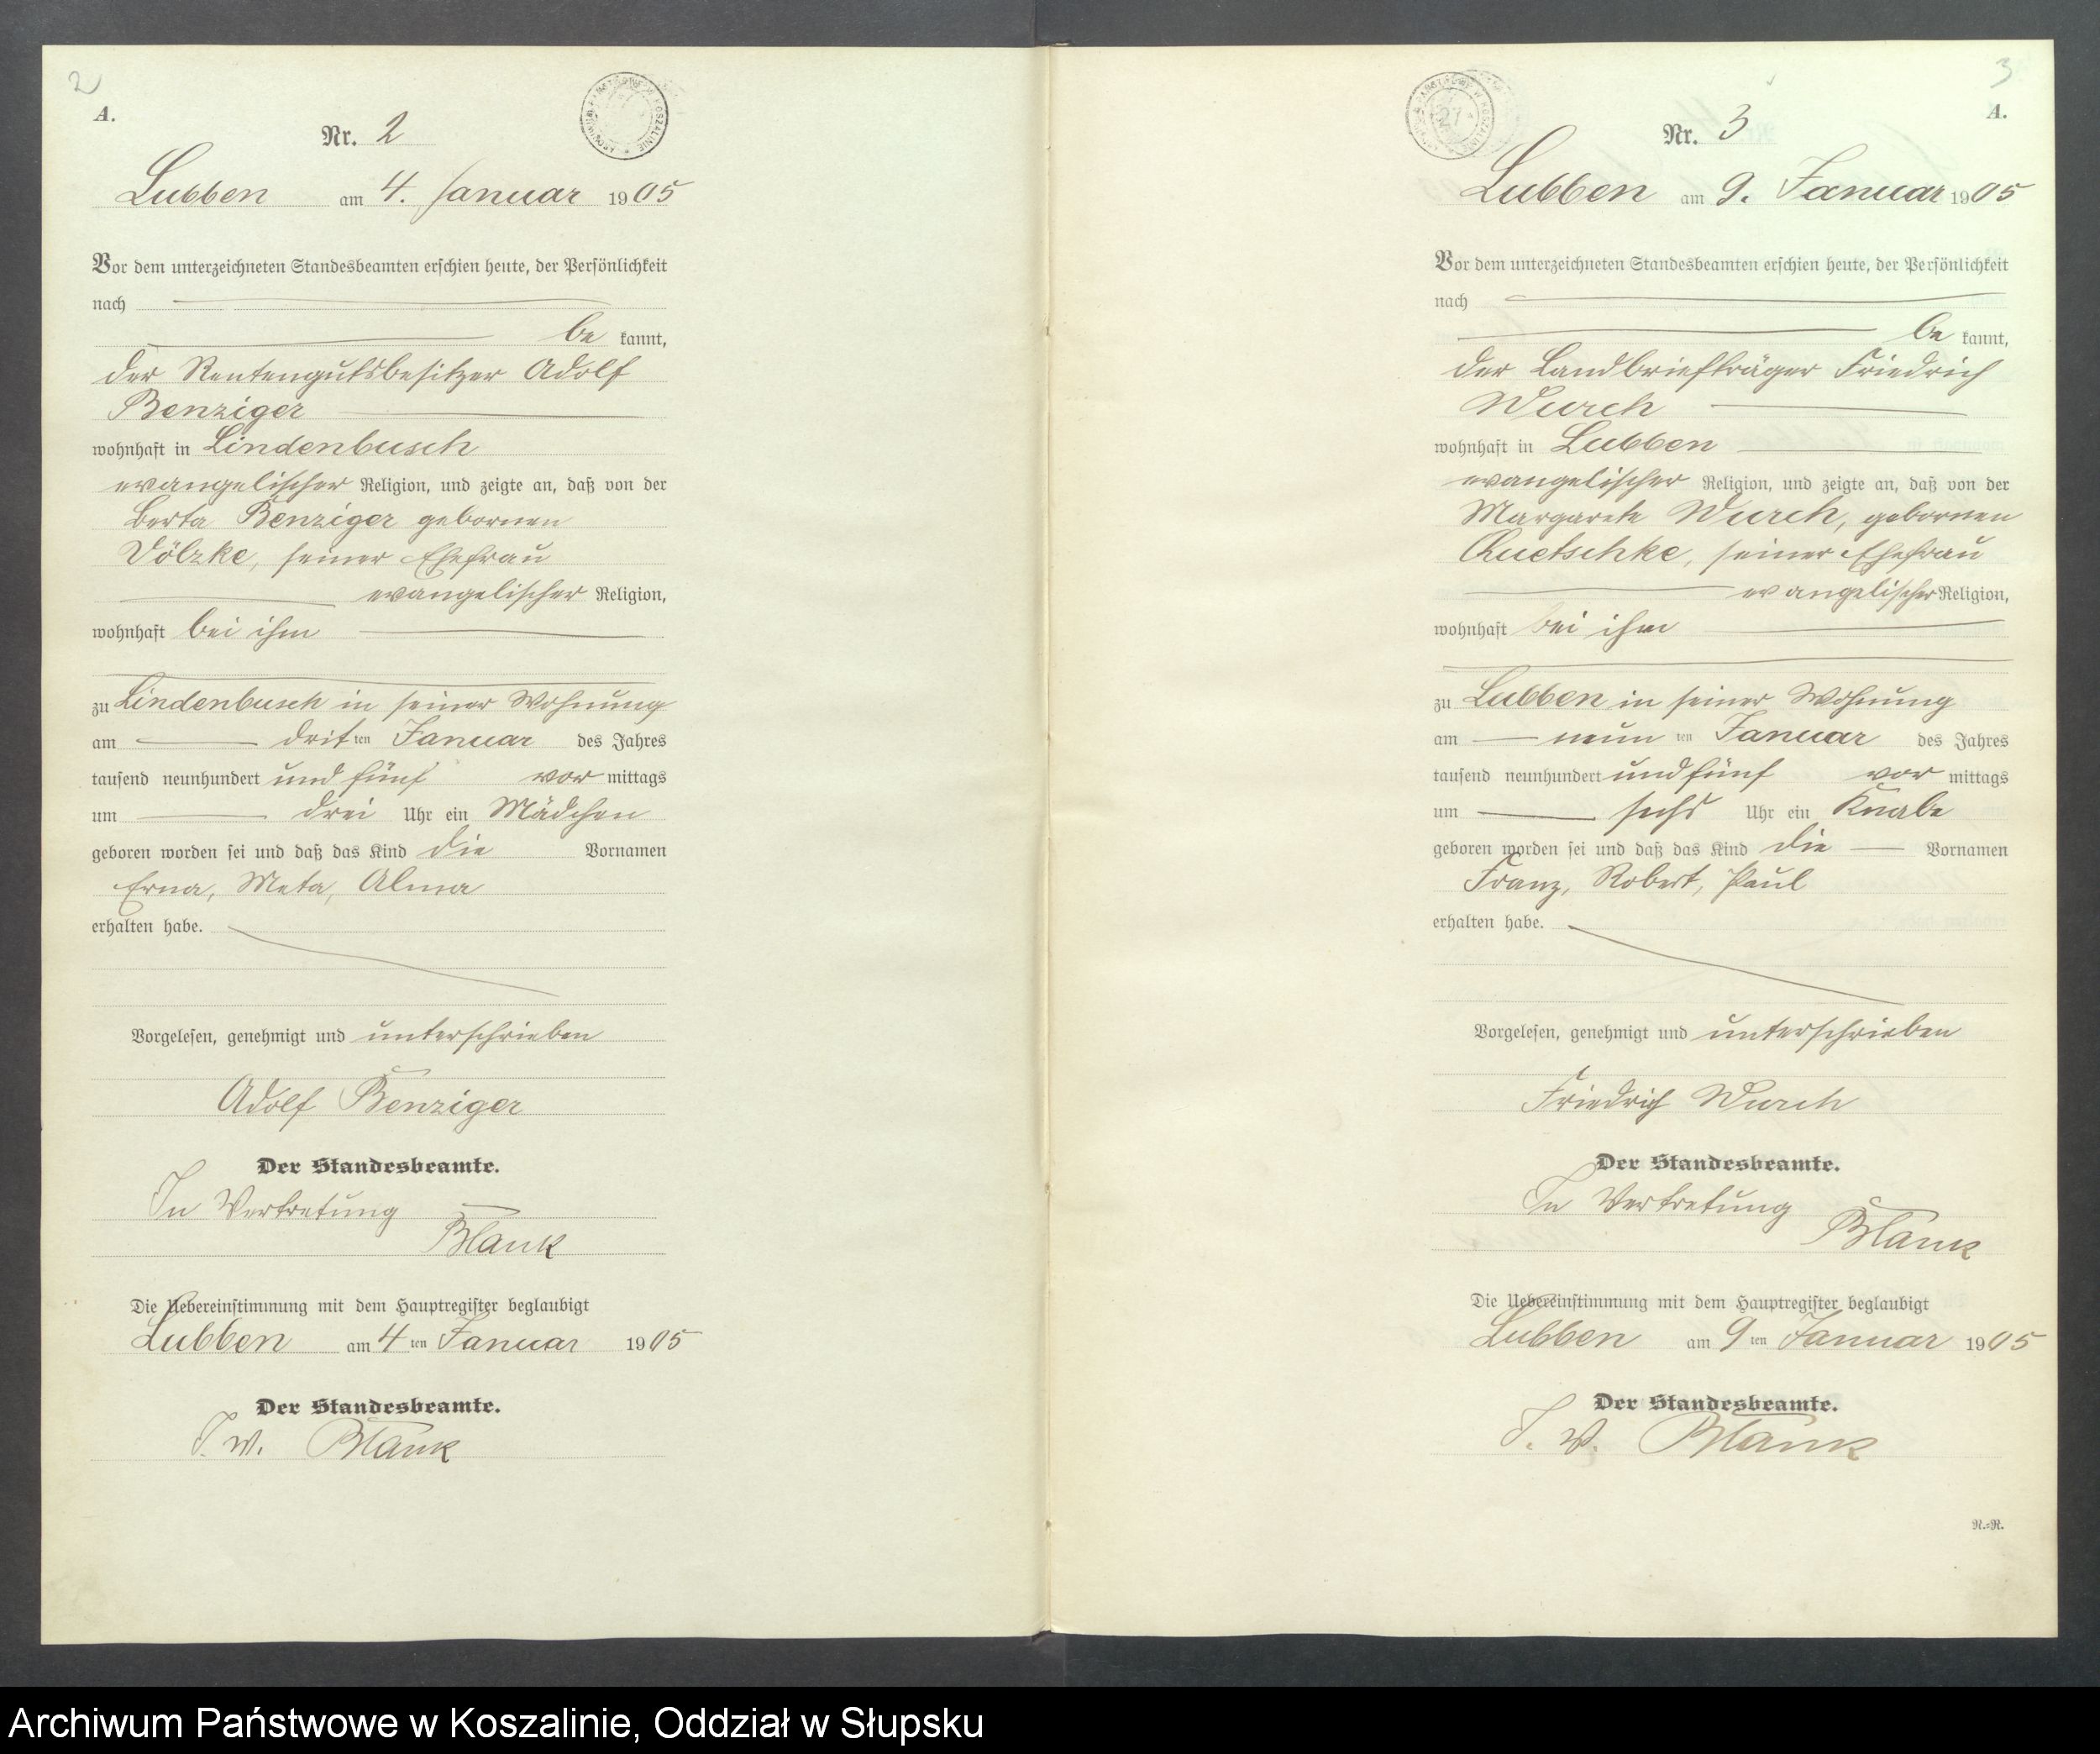 2
A.
Nr. 2
Lubben am 4. Januar 1905
Vor dem unterzeichneten Standesbeamten erschien heute, der Persönlichkeit
nach
be kannt,
der Rentengutsbesitzer Adolf
Benziger
wohnhaft in Lindenbusch
evangelischer Religion, und zeigte an, daß von der
Berta Benziger gebornen
Völzke, seiner Ehefrau
evangelischer Religion,
wohnhaft bei ihm
zu Lindenbusch in seiner Wohnung
am dritten Januar des Jahres
tausend neunhundert und fünf vor mittags
um drei Uhr ein Mädchen
geboren worden sei und daß das Kind die Vornamen
Erna, Meta, Alma
erhalten habe.
Vorgelesen, genehmigt und unterschrieben
Adolf Benziger
Der Standesbeamte.
In Vertretung
Blank
Die Uebereinstimmung mit dem Hauptregister beglaubigt
Lubben am 4ten Januar 1905
Der Standesbeamte.
I. V. Blank
3
A.
Nr. 3
Lubben am 9. Januar 1905
Vor dem unterzeichneten Standesbeamten erschien heute, der Persönlichkeit
nach
be kannt,
der Landbriefträger Friedrich
Wurch
wohnhaft in Lubben
evangelischer Religion, und zeigte an, daß von der
Margarete Wurch, gebornen
Quetschke, seiner Ehefrau
evangelischer Religion,
wohnhaft bei ihm
zu Lubben in seiner Wohnung
am neunten Januar des Jahres
tausend neunhundert und fünf vor mittags
um sechs Uhr ein Knabe
geboren worden sei und daß das Kind die Vornamen
Franz, Robert, Paul
erhalten habe.
Vorgelesen, genehmigt und unterschrieben
Friedrich Wurch
Der Standesbeamte.
In Vertretung
Blank
Die Uebereinstimmung mit dem Hauptregister beglaubigt
Lubben am 9ten Januar 1905
Der Standesbeamte.
I. V. Blank
R.-R.
Archiwum Państwowe w Koszalinie, Oddział w Słupsku